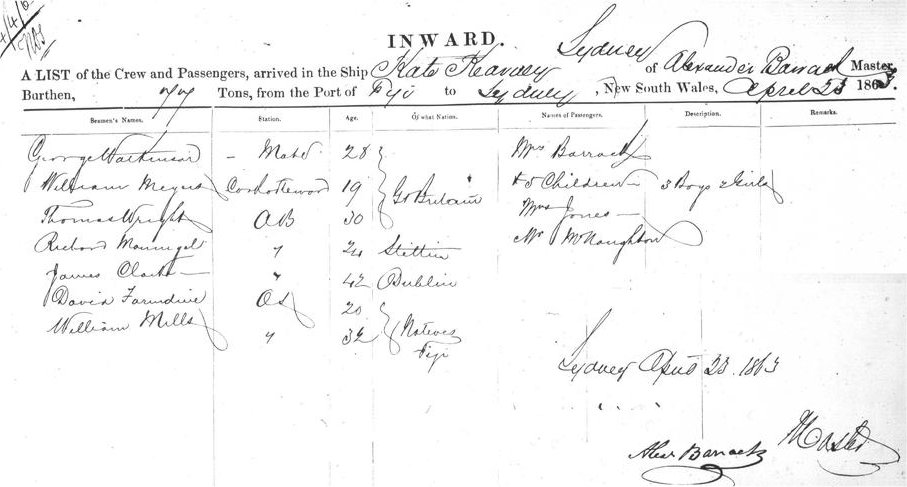 INWARD.
A LIST of the Crew and Passengers, arrived in the Ship Kate Kearney Sydney of Alexander Barrack Master,
Burthen, Tons, from the Port of Fiji to Sydney, New South Wales, April 23 1863.
Seamen's Names. Station. Age. Of what Nation. Names of Passengers. Description. Remarks.
George Watkinson - Mate 28 Mrs Barrack
William Meyers Cook & Steward 19 Gt Britain + 5 Children 3 Boys 2 Girls
Thomas Wright AB 30 Mrs Jones
Richard 〃 24 Stettin Mr McNaughton
James Clark 〃 42 Dublin
David OS 20
William Mills 〃 32 Natives
Fiji
Sydney April 23. 1863
Alexr Barrack Master